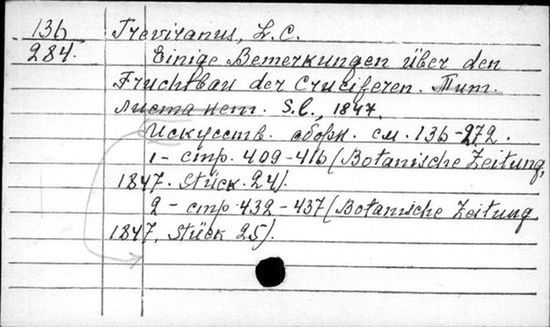 136
284.
Treviranus, L.C.
Einige Bemerkungen über den
Fruchtbau der Cruciferen. Тит.
листа нет. S.l., 1847.
Искусств. сборн. см. 136-272.
1- стр. 409-416 (Botanische Zeitung,
1847. Stück. 24).
2 - стр. 432-437 (Botanische Zeitung
1847, Stück 25).